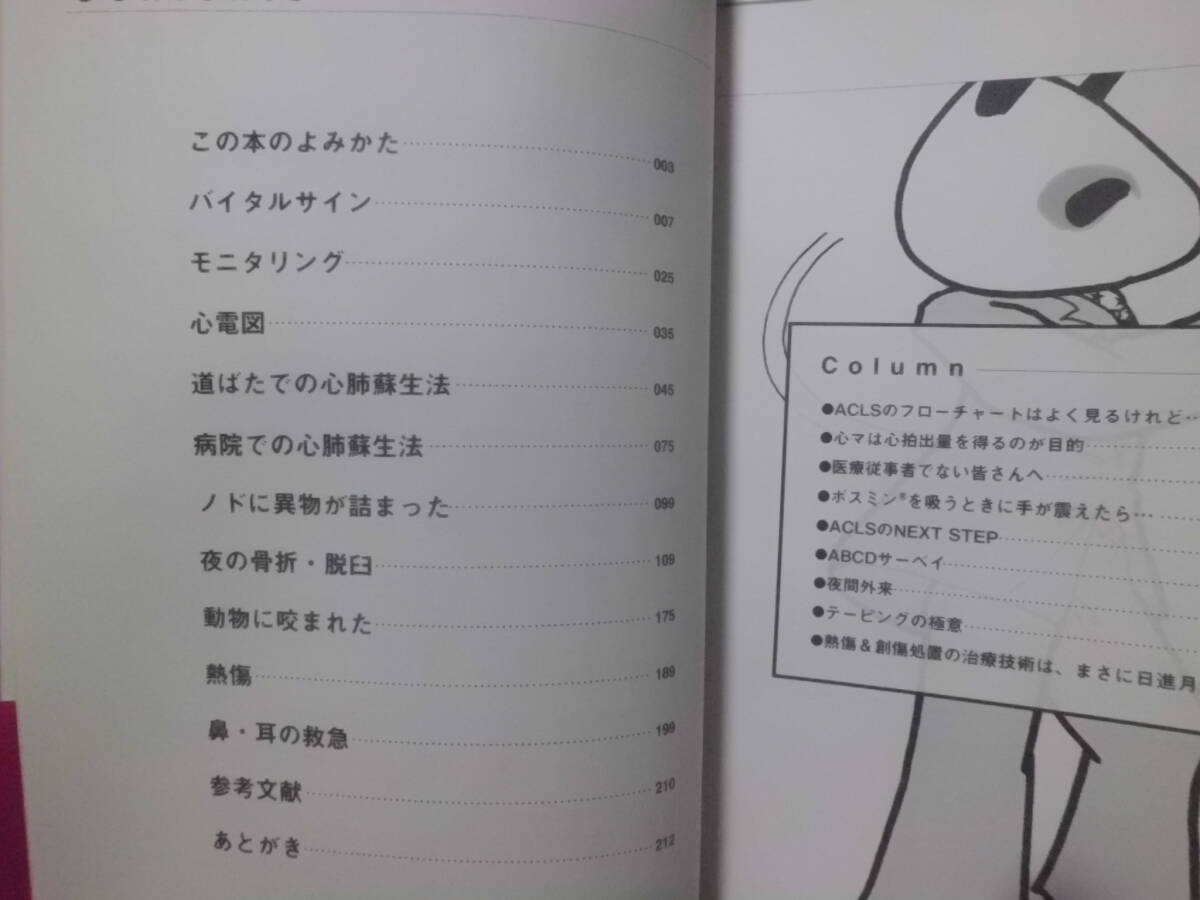 この本のよみかた 003
バイタルサイン 007
モニタリング 025
心電図 035
道ばたでの心肺蘇生法 045
病院での心肺蘇生法 075
ノドに異物が詰まった 099
夜の骨折・脱臼 109
動物に咬まれた 175
熱傷 189
鼻・耳の救急 199
参考文献 210
あとがき 212
Column
●ACLSのフローチャートはよく見るけれど…
●心マは心拍出量を得るのが目的
●医療従事者でない皆さんへ
●ボスミン®を吸うときに手が震えたら…
●ACLSのNEXT STEP
●ABCDサーベイ
●夜間外来
●テーピングの極意
●熱傷＆創傷処置の治療技術は、まさに日進月